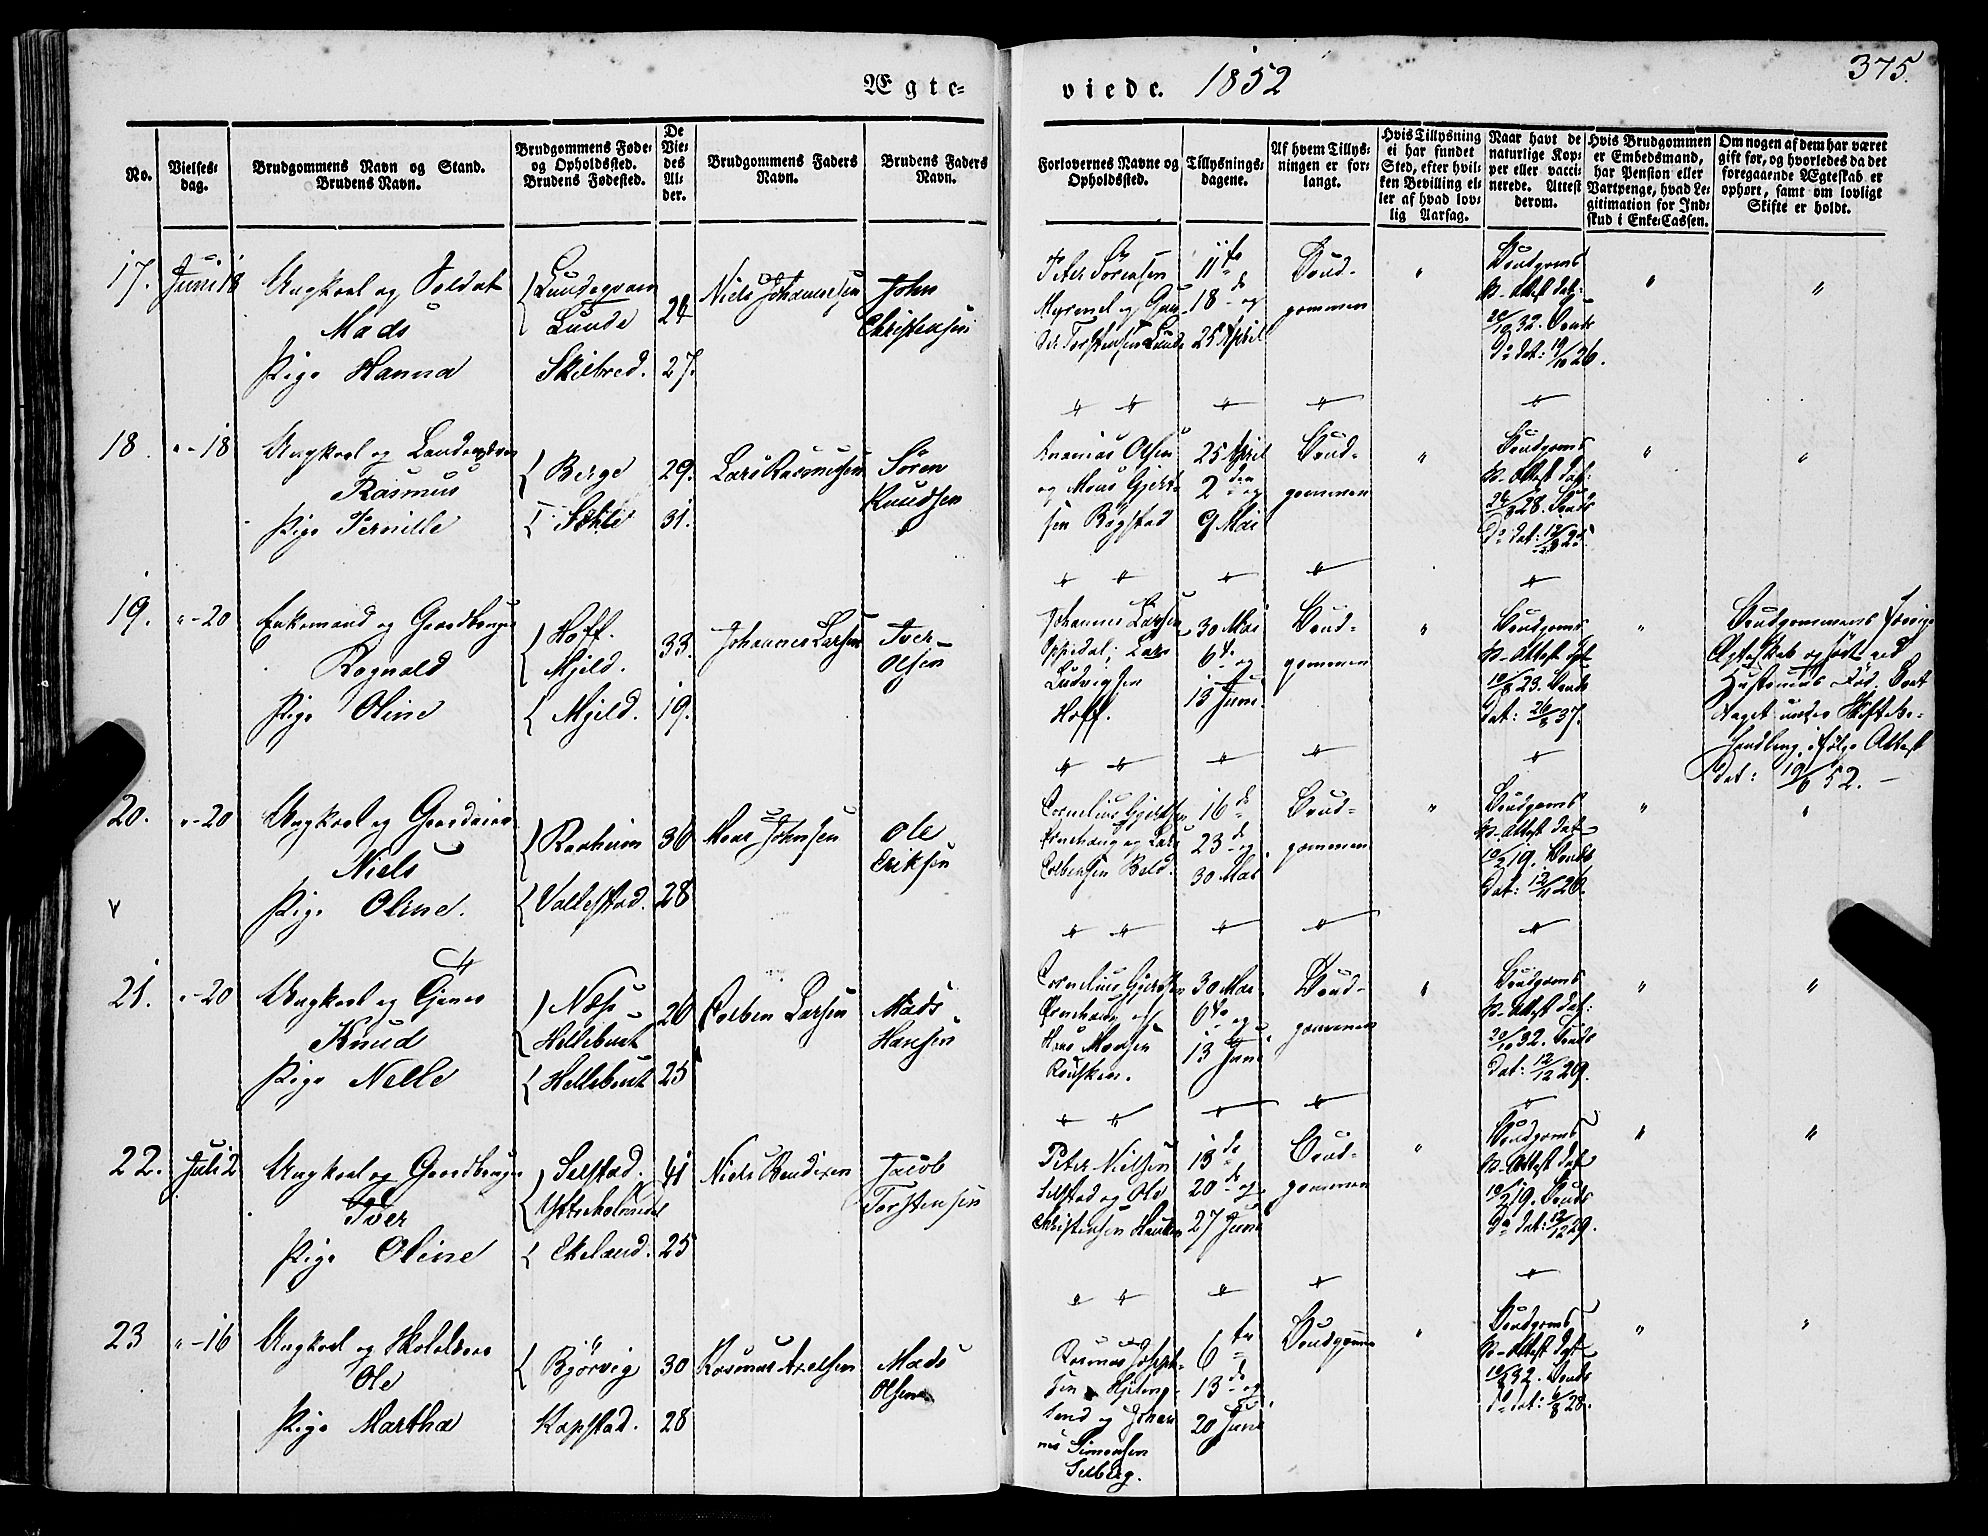 Ægte-
viede. 1852
375.
No.
Vielses-
dag.
Brudgommens Navn og Stand.
Brudens Navn.
Brudgommens Føde-
og Opholdssted.
Brudens Fødested.
De
Vie-
des
Al-
der.
Brudgommens Faders
Navn.
Brudens Faders
Navn.
Forlovernes Navne og
Opholdssted.
Tillysnings-
dagene.
Af hvem Tillys-
ningen er for-
langt.
Hvis Tillysning
ei har fundet
Sted, efter hvil-
ken Bevilling el-
ler af hvad lov-
lig Aarsag.
Naar havt de
naturlige Kop-
per eller vacci-
nerede. Attest
derom.
Hvis Brudgommen
er Embedsmand,
har Pension eller
Vartpenge, hvad Le-
gitimation for Ind-
skud i Enke-Cassen.
Om nogen af dem har været
gift før, og hvorledes da det
foregaaende Ægteskab er
ophørt, samt om lovligt
Skifte er holdt.
17. Juni 18 Ungkarl og Soldat
Mads
Pige Hanna
Lunde
Skilbred.
24
27.
Niels Johannesen
John
Christensen
Peter Sørensen
Myrmel og
Torstensen Lunde
11te
18de og
25 April
Brud-
gommen
Brudgoms
V. Attest dat:
20/10 32. Bruds
Do dat: 19/10 26.
18. " - 18 Ungkarl og
Rasmus
Pige Pernille
Berge
29.
31.
Lars Rasmusen
Søren
Knudsen
Ananias Olsen
og Mons Gjert-
sen Bøgstad
25 April
2den og
9 Mai
Brud-
gommen
Brudgoms
V. Attest dat:
28. Bruds
Do dat:
19. " - 20 Enkemand og Gaardbruger
Rognald
Pige Oline
Hoff.
Mjeld.
Mjeld.
33.
19.
Johannes Larsen
Iver
Olsen
Johannes Larsen
Oppedal; Lars
Ludvigsen
Hoff.
30 Mai
6te og
13 Juni
Brud-
gommen
Brudgoms
V. Attest dat
23. Bruds
dat: 26/8 37.
Brudgommens forrige
Ægteskab ophørt ved
Hustruens Død. Boet
taget under Skiftebe-
handling, ifølge Attest
dat: 19/6 52. -
20. " - 20 Ungkarl og
Niels
Pige Oline.
Raaheim
Vallestad.
36
28
Mons Johnsen
Ole
Eriksen
Cornelius Gjertsen
Ørnehaug og Lars
Colbensen Bald.
16de
23de og
30 Mai
Brud-
gommen
Brudgoms
V. Attest dat
19. Bruds
dat: 12/11 26.
21. " - 20 Ungkarl og
Knud
Pige Nelle
Næss
Hellebust
Hellebust
26
25
Colben Larsen
Mads
Hansen
Cornelius Gjertsen
Ørnehaug og
Hans Monsen
30 Mai
6te og
13 Juni
Brud-
gommen
Brudgoms
V. Attest dat:
20/10 32. Bruds
dat: 12/12 29.
22. Juli 2 Ungkarl og Gaardbruger
Iver
Pige Oline
Selstad.
Ytreholmedal
Ekeland.
41
25
Niels Bendixen
Jacob
Torstensen
Peter Nielsen
Selstad og Ole
Christensen
13de
20de og
27 Juni
Brud-
gommen
Brudgoms
V. Attest dat
19. Bruds
Do dat: 12/12 29.
23 " - 16 Ungkarl og Skolelærer
Ole
Pige Martha
Bjørvig
Kapstad.
30
28
Rasmus Axelsen
Mads
Olsen
Rasmus Joseph-
sen
og Johan-
nes Simonsen
Selberg.
6te
13de og
20 Juni
Brudgommen
Brudgoms
V. Attest dat
32. Bruds
Do dat: 6/8 28.